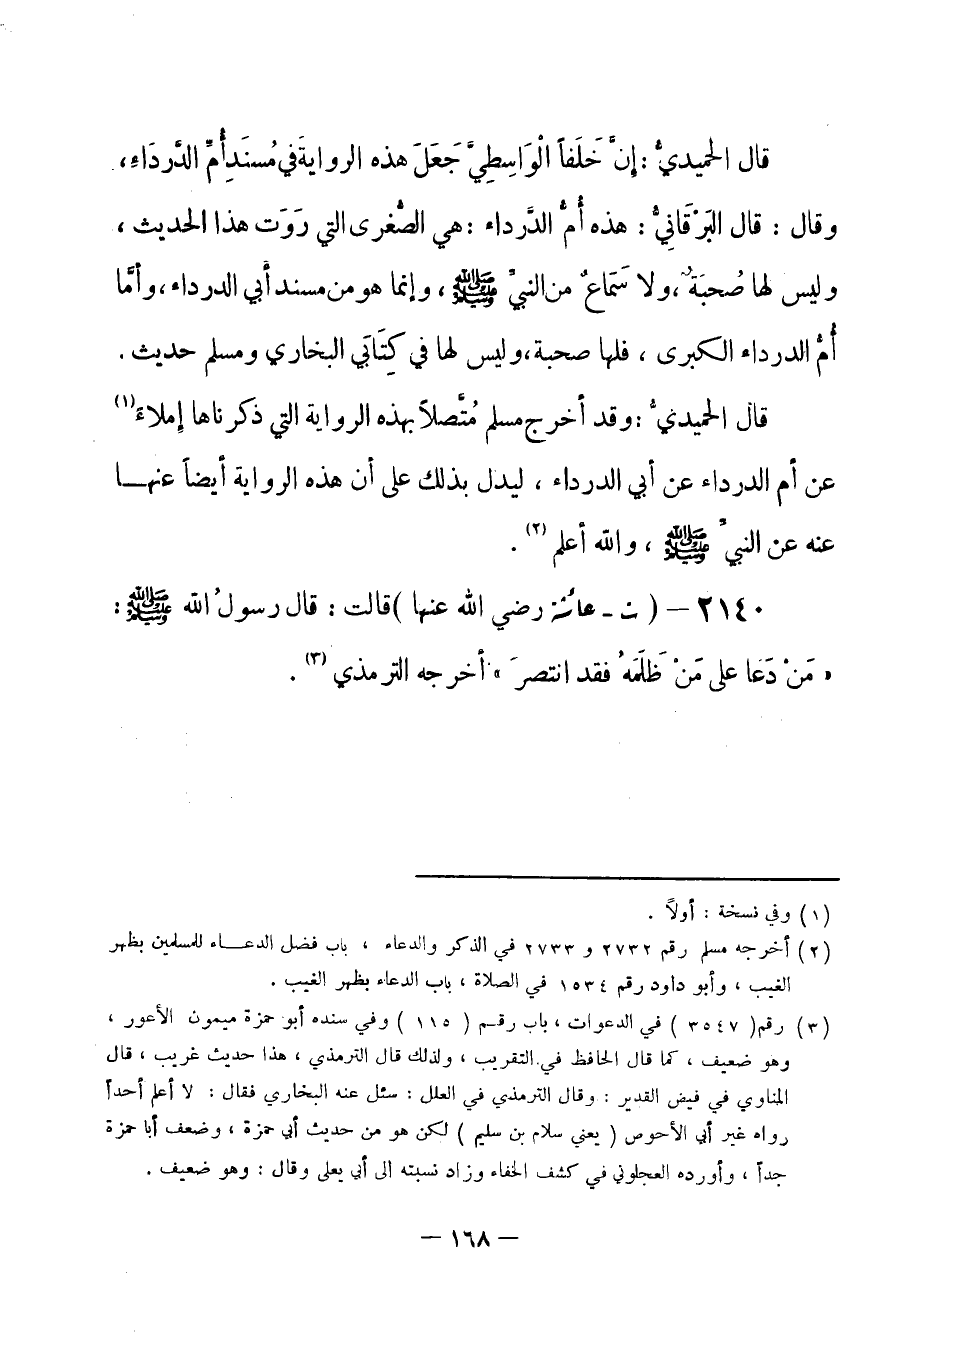 قال الحميديُّ : إنَّ خَلَفاً الْوَاسِطِيَّ جَعَلَ هذه الروايةَ في مُسنَدِ أُمِّ الدَّردَاءِ،
وقال : قال البَرْقَانِيُّ : هذه أُمُّ الدَّرداء : هي الصُّغرى التي رَوَت هذا الحديث ،
وليس لها صُحبَةٌ ، ولا سَمَاعٌ من النبيِّ ﷺ ، وإنما هو من مسند أبي الدرداء ، وأمَّا
أُمُّ الدرداء الكبرى ، فلها صحبة ، وليس لها في كِتَابَي البخاري ومسلم حديث .
قال الحميديُّ : وقد أخرج مسلم مُتَّصلاً بهذه الرواية التي ذكرناها إملاءً (١)
عن أم الدرداء عن أبي الدرداء ، ليدل بذلك على أن هذه الرواية أيضاً عنهـا
عنه عن النبيِّ ﷺ ، والله أعلم (٢) .
٢١٤٠ – ( ت ـ عائشة رضي الله عنها ) قالت : قال رسولُ الله ﷺ :
« مَنْ دَعَا على مَنْ ظَلَمَهُ فقد انتصرَ » أخرجه الترمذي (٣) .
(١) وفي نسخة : أولاً .
(٢) أخرجه مسلم رقم ٢٧٣٢ و ٢٧٣٣ في الذكر والدعاء ، باب فضل الدعـاء للمسلمين بظهر
الغيب ، وأبو داود رقم ١٥٣٤ في الصلاة ، باب الدعاء بظهر الغيب .
(٣) رقم ( ٣٥٤٧ ) في الدعوات ، باب رقـم ( ١١٥ ) وفي سنده أبو حمزة ميمون الأعور ،
وهو ضعيف ، كما قال الحافظ في التقريب ، ولذلك قال الترمذي ، هذا حديث غريب ، قال
المناوي في فيض القدير : وقال الترمذي في العلل : سئل عنه البخاري فقال : لا أعلم أحداً
رواه غير أبي الأحوص ( يعني سلام بن سليم ) لكن هو من حديث أبي حمزة ، وضعف أبا حمزة
جداً ، وأورده العجلوني في كشف الخفاء وزاد نسبته الى أبي يعلى وقال : وهو ضعيف .
– ١٦٨ –